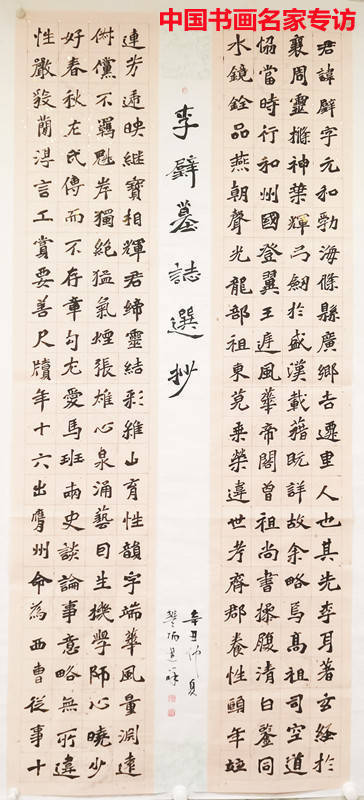 中国书画名家专访
君諱璧字元和勃海條縣廣鄉吉遷里人也其先李耳著玄經於
襄周靈神葉輝弓劍於盛漢載籍既詳故余略焉高祖司空道
協當時行和州國登翼王庭風華帝閣曾祖尚書操履清白鑒同
水鏡銓品燕朝聲光龍部祖東莞乘榮違世考齊郡養性頤年並
李璧墓誌選抄
辛丑仲夏
連芳遞映繼寶相輝君締靈結彩維山育性韻宇端華風量淵遠
倜儻不羈魁岸獨絕猛氣煙張雄心泉涌藝因生機學師心曉少
好春秋左氏傳而不存章句尤愛馬班兩史談論事意略無所違
性嚴毅蕑淳言工賞要善尺牘年十六出膺州命為西曹從事十